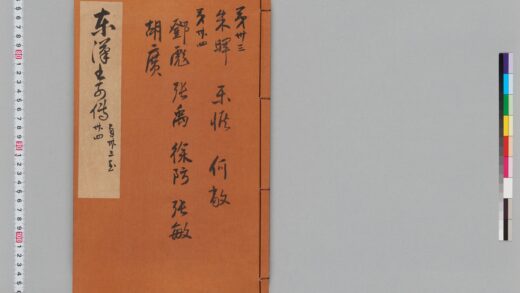 第卅三
朱暉 樂恢 何敞
第卅四
鄧彪 張禹 徐防 張敏
胡廣
東漢書列傳 自卅三至
卅四